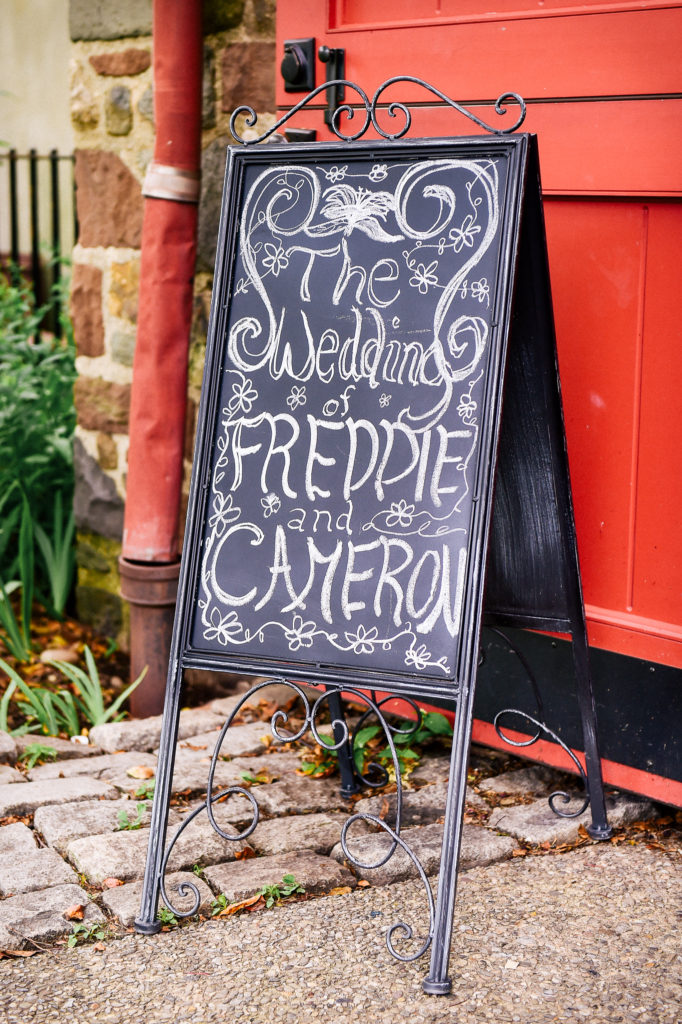 The
Wedding
of
FREDDIE
and
CAMERON